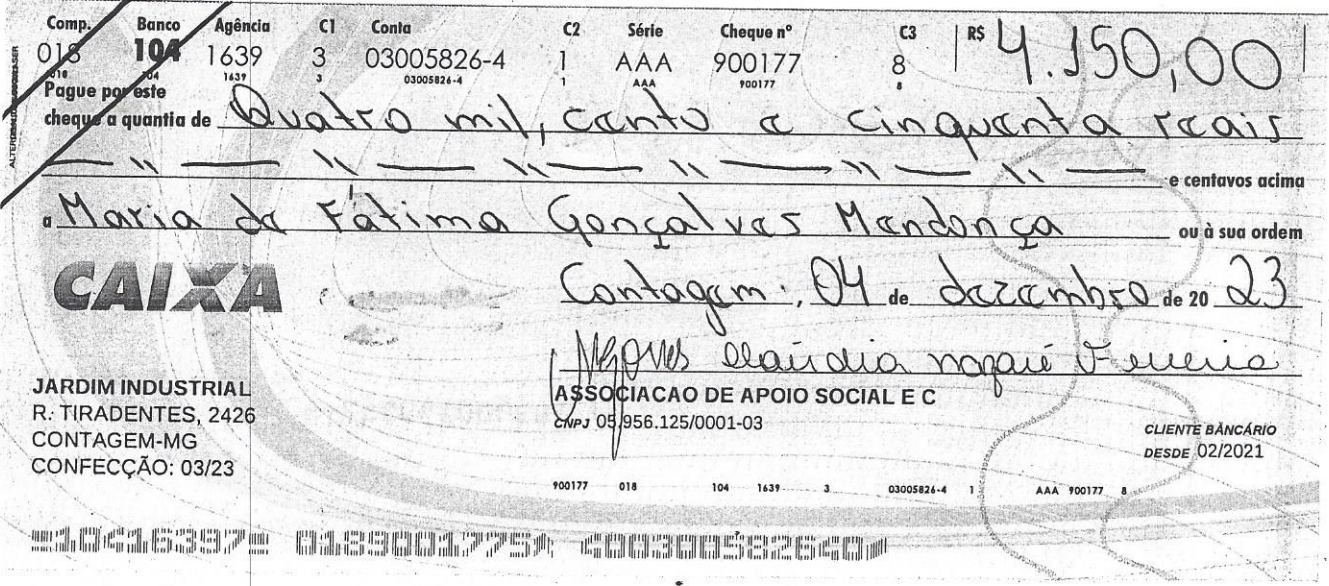 Comp. Banco Agência C1 Conta C2 Série Cheque nº C3 R$ 4.150,00
018 104 1639 3 03005826-4 1 AAA 900177 8
018 104 1639 3 03005826-4 1 AAA 900177 8
Pague por este
cheque a quantia de Quatro mil, cento e cinquenta reais
e centavos acima
a Maria de Fátima Gonçalves Mendonça ou à sua ordem
CAIXA
Contagem, 04 de dezembro de 20 23
Claudia Nazaré Ferreira
JARDIM INDUSTRIAL
R. TIRADENTES, 2426
CONTAGEM-MG
CONFECÇÃO: 03/23
ASSOCIACAO DE APOIO SOCIAL E C
CNPJ 05.956.125/0001-03
CLIENTE BANCÁRIO
DESDE 02/2021
900177 018 104 1639 3 03005826-4 1 AAA 900177 8
10416397 0189001775 400300582640